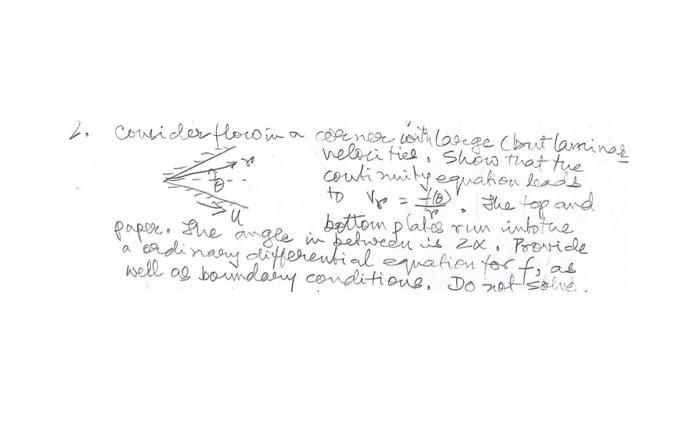 2. Consider flow in a corner with large (but laminar
velocities. Show that the
r
θ
continuity equation leads
to Vr = f(θ)/r. The top and
U
bottom plates run into the
paper. The angle in between is 2α. Provide
a ordinary differential equation for f, as
well as boundary conditions. Do not solve.